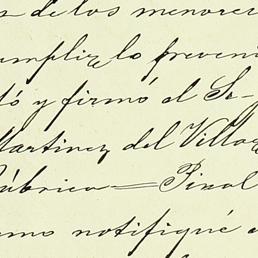 de los menores
cumplir lo preveni
tó y firmó el Sr-
Martinez del Villa
Rúbrica = Pinol
notifiqué